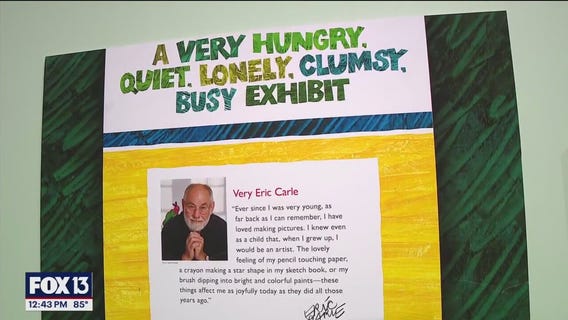 A VERY HUNGRY,
QUIET, LONELY, CLUMSY,
BUSY EXHIBIT
Very Eric Carle
“Ever since I was very young, as
far back as I can remember, I have
loved making pictures. I knew even
as a child that, when I grew up, I
would be an artist. The lovely
feeling of my pencil touching paper,
a crayon making a star shape in my sketch book, or my
brush dipping into bright and colorful paints—these
things affect me as joyfully today as they did all those
years ago.”
ERIC
CARLE
FOX 13
12:43 PM 85°